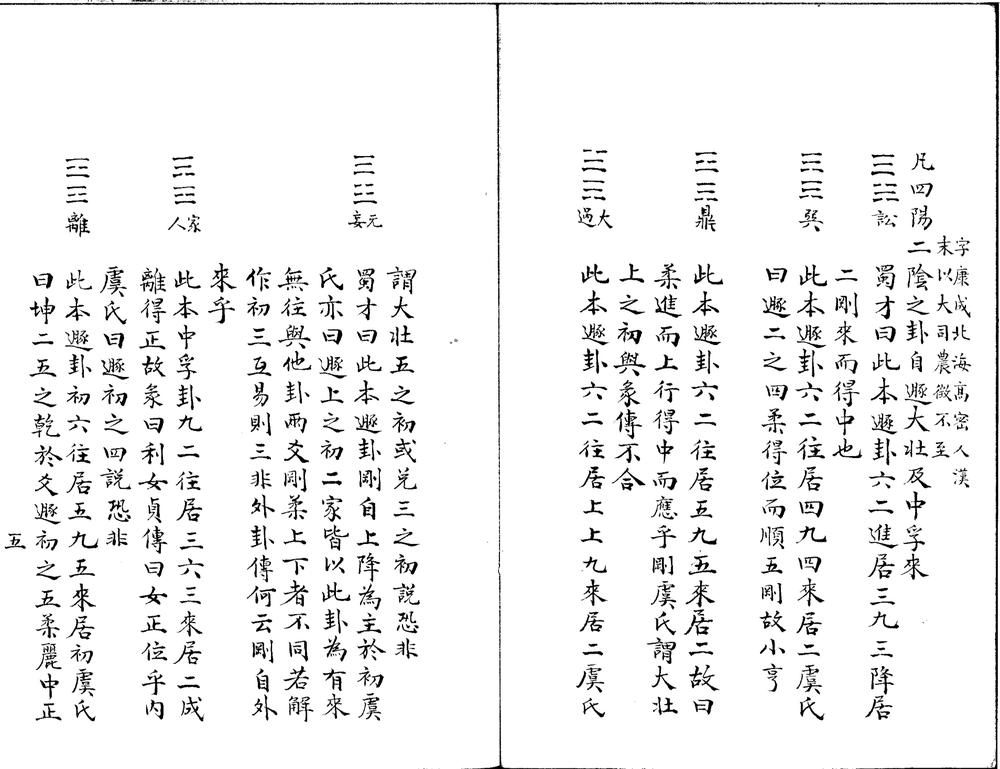 字康成北海高密人漢
末以大司農徵不至
凡四陽二陰之卦自遯大壯及中孚來
訟
蜀才曰此本遯卦六二進居三九三降居
二剛來而得中也
巽
此本遯卦六二往居四九四來居二虞氏
曰遯二之四柔得位而順五剛故小亨
鼎
此本遯卦六二往居五九五來居二故曰
柔進而上行得中而應乎剛虞氏謂大壯
上之初與彖傳不合
大過
此本遯卦六二往居上上九來居二虞氏
謂大壯五之初或兌三之初說恐非
无妄
蜀才曰此本遯卦剛自上降為主於初虞
氏亦曰遯上之初二家皆以此卦為有來
無往與他卦兩爻剛柔上下者不同若解
作初三互易則三非外卦傳何云剛自外
來乎
家人
此本中孚卦九二往居三六三來居二成
離得正故彖曰利女貞傳曰女正位乎內
虞氏曰遯初之四說恐非
離
此本遯卦初六往居五九五來居初虞氏
曰坤二五之乾於爻遯初之五柔麗中正
五